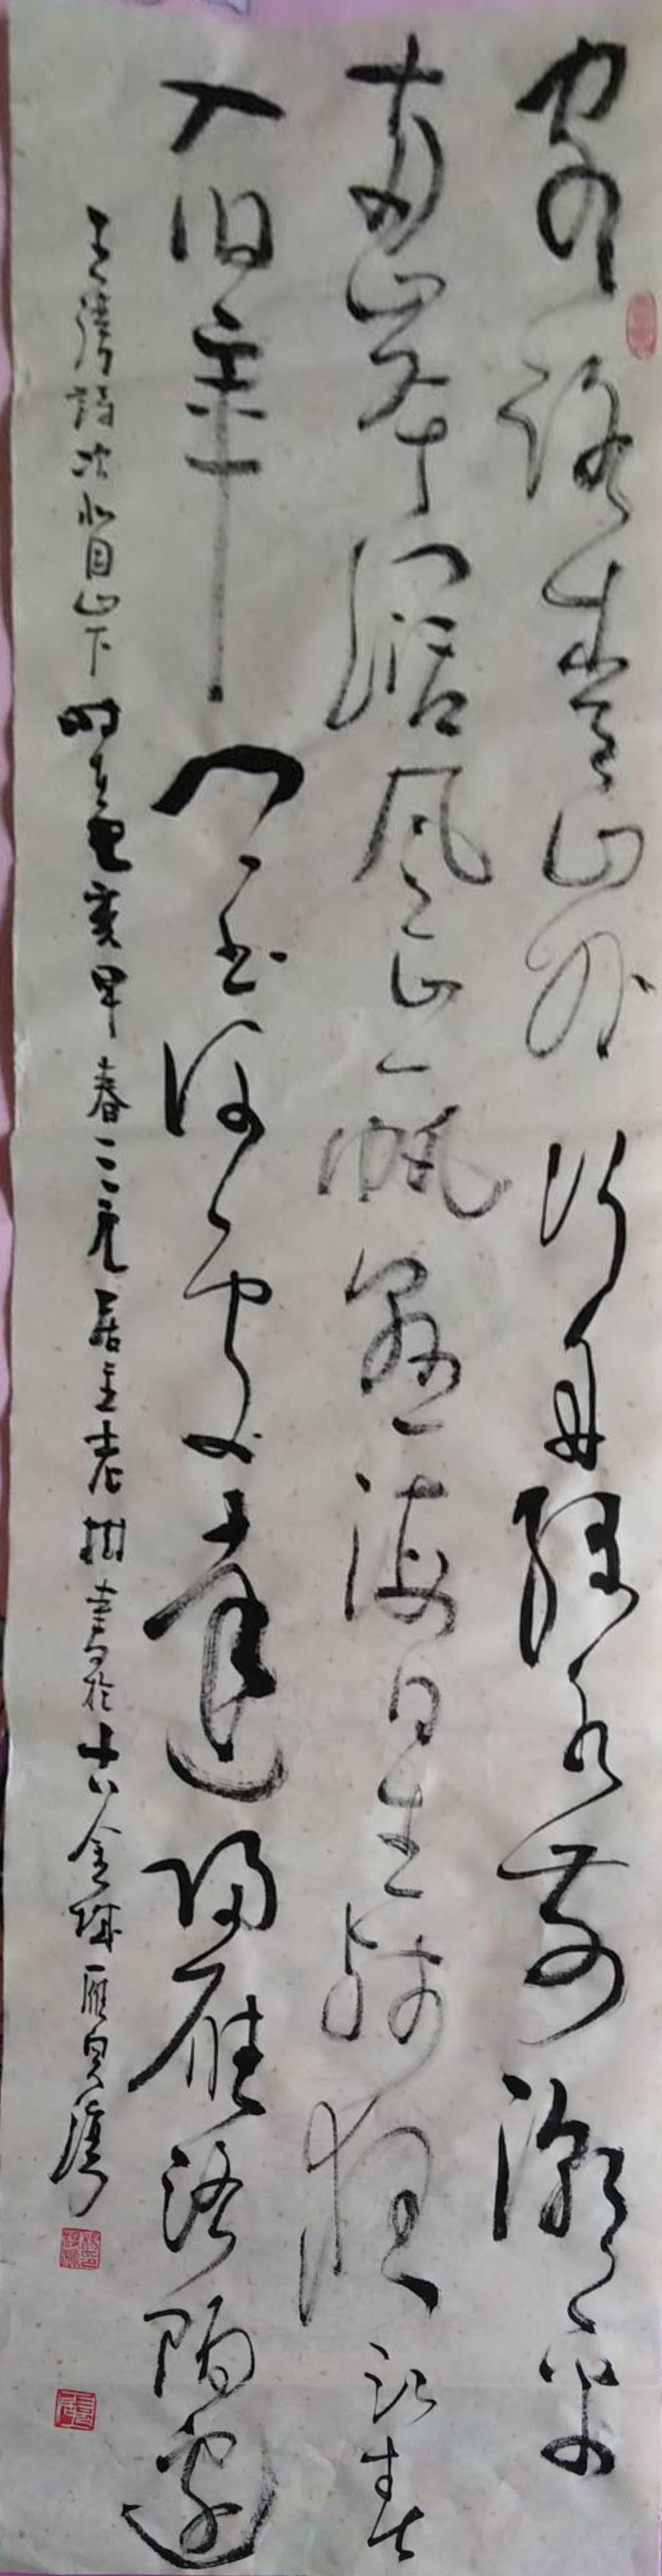 客路青山外行舟绿水前潮平
两岸阔风正一帆悬海日生残夜江春
入旧年乡书何处达归雁洛阳边
王湾诗次北固山下时在己亥年春三元居主老树书于金城雁湾